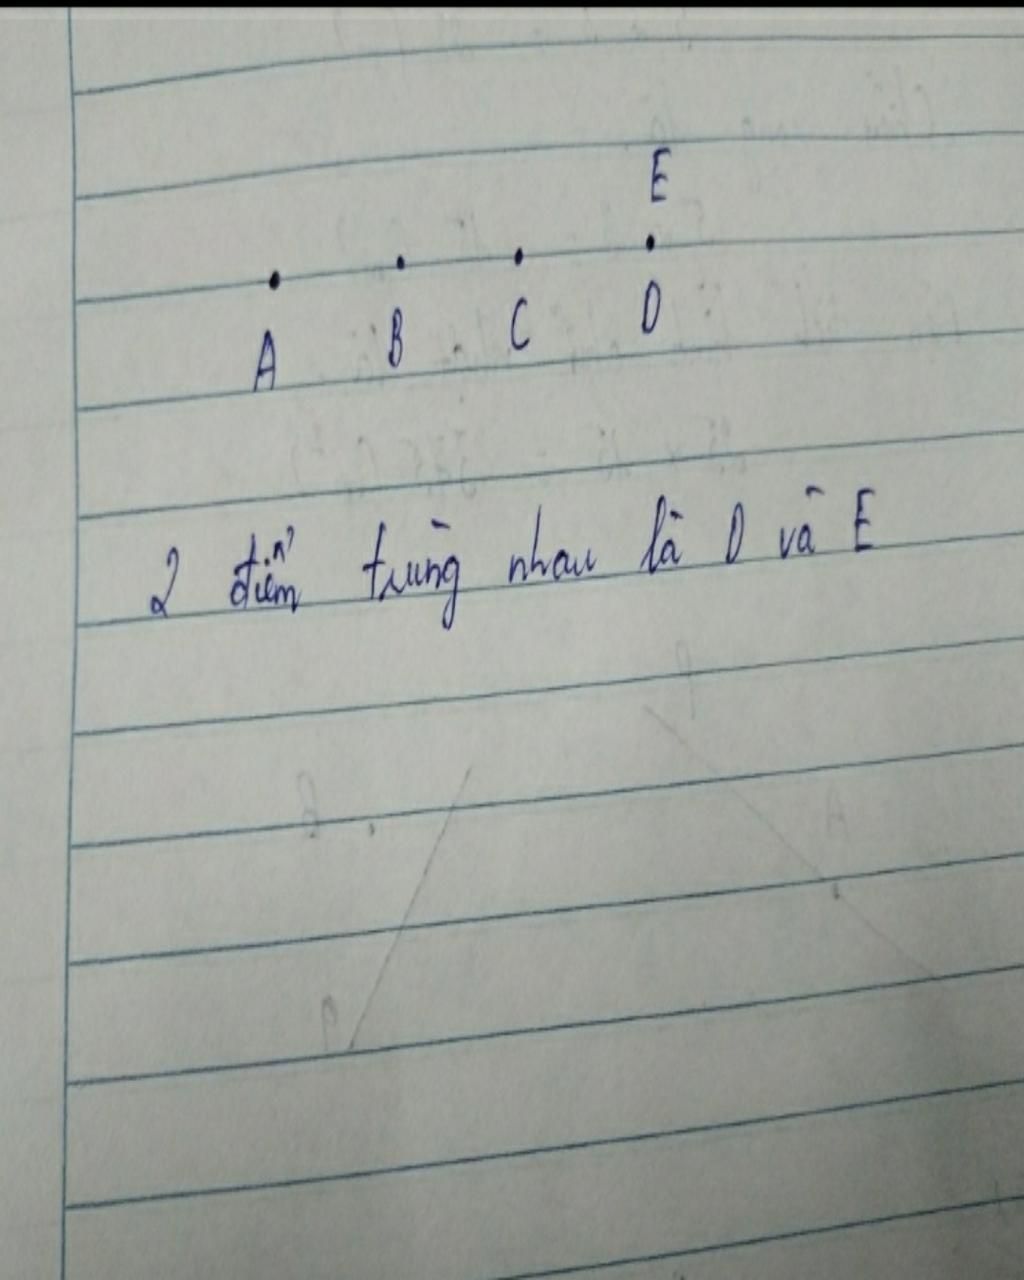 E
A B C D
2 điểm trùng nhau là D và E